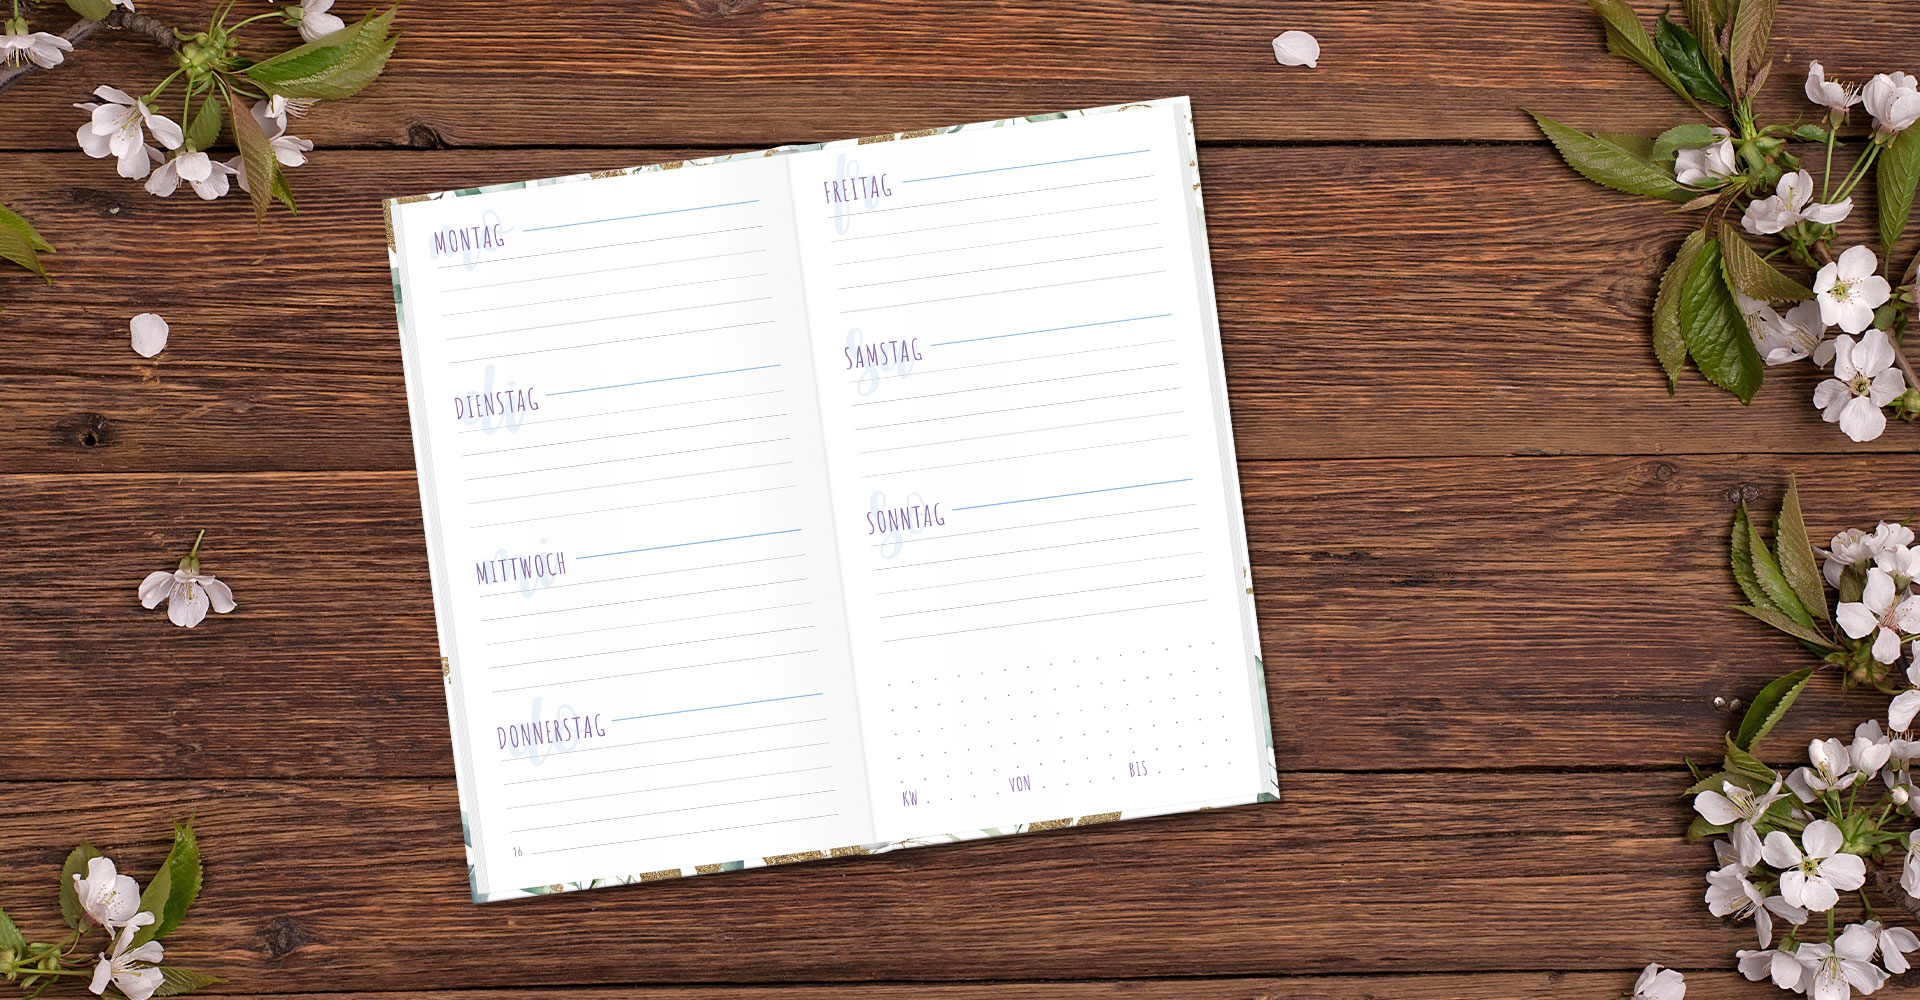 MONTAG
mo
DIENSTAG
di
MITTWOCH
mi
DONNERSTAG
do
16
FREITAG
fr
SAMSTAG
sa
SONNTAG
so
KW . . . . VON . . . . BIS . . . .